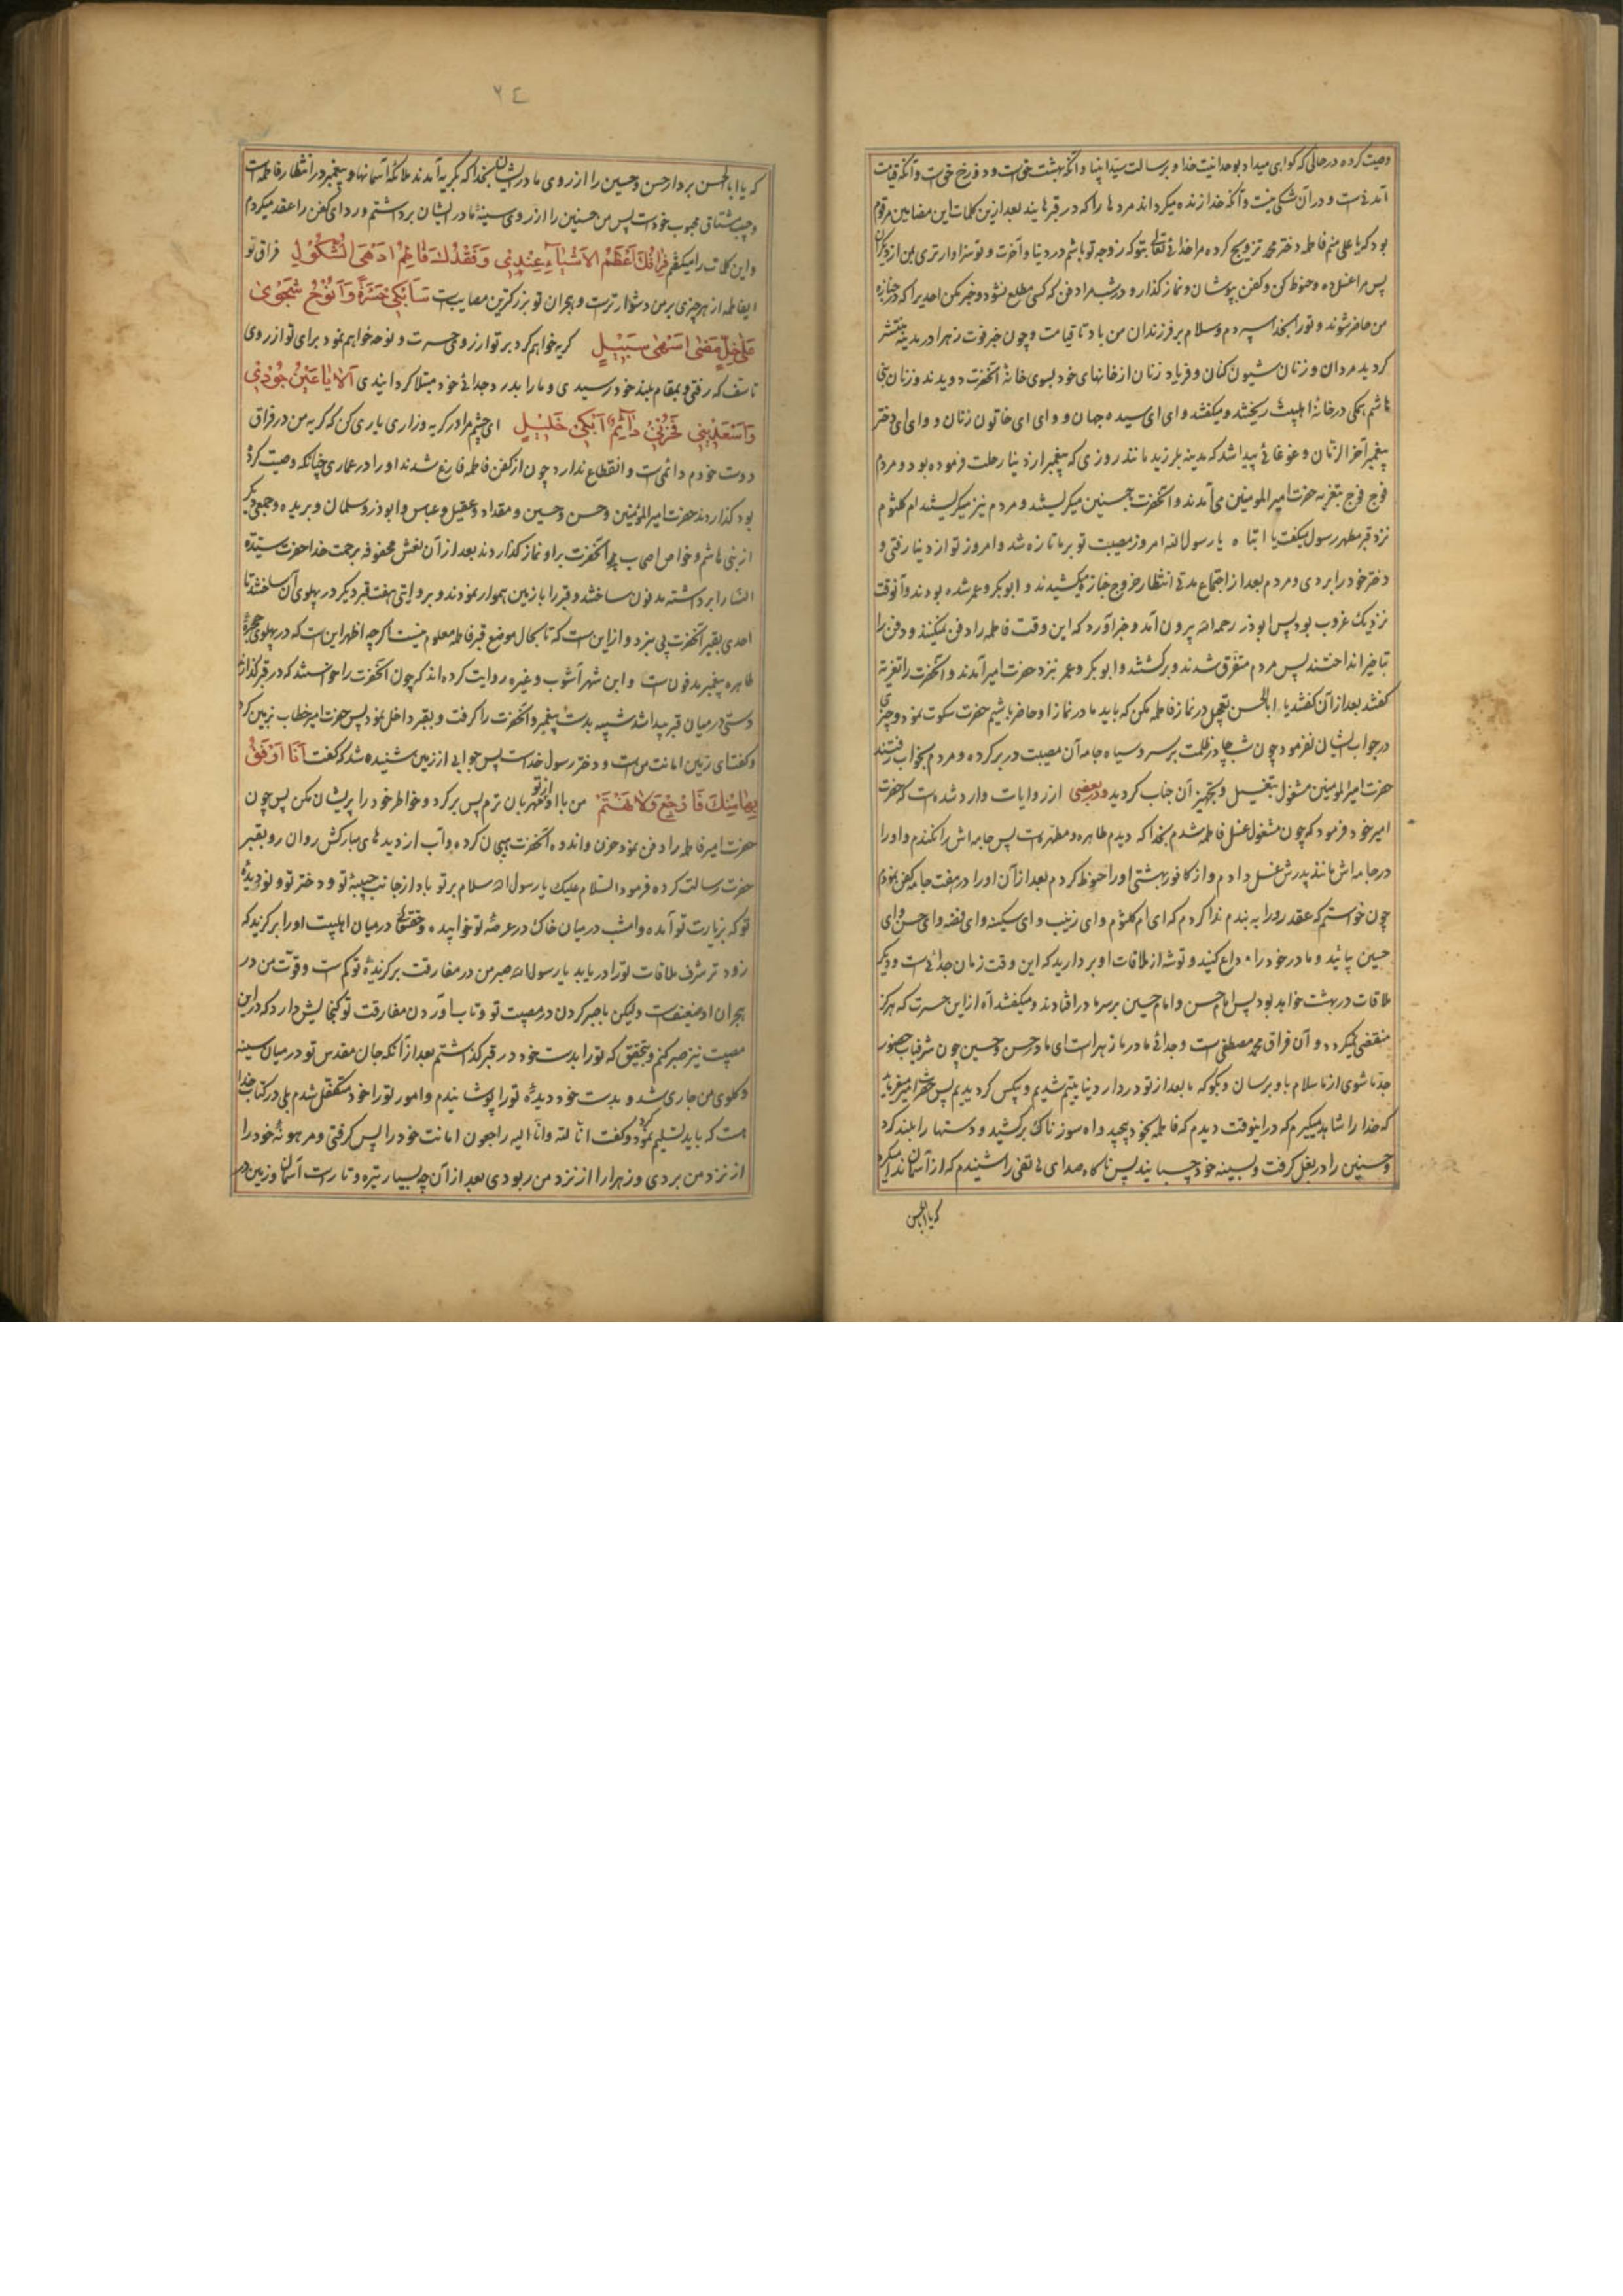 وصیت کرده در حالی که گواهی میداد بوحدانیت خدا و برسالت سید انبیا و آنکه بهشت حق است و دوزخ حق است و آنکه قیامت
آمدنی است و در آن شکی نیست و آنکه خدا زنده میگرداند مردها را که در قبرهایند بعد ازین کلمات این مضامین مرقوم
بود که یا علی منم فاطمه دختر محمد تزویج کرده مرا خدای تعالی بتو که زوجه تو باشم در دنیا و آخرت و تو سزاوارتری بمن از دیگران
پس مرا غسل ده و حنوط کن و کفن بپوشان و نماز گذار و در شب مرا دفن کن که کسی مطلع نشود و خبر مکن احدیرا که در جنازه
من حاضر شوند و تو را بخدا سپردم و سلام بر فرزندان من باد تا قیامت و چون خبر فوت زهرا در مدینه منتشر
گردید مردان و زنان شیون کنان و فریاد زنان از خانهای خود بسوی خانه آنحضرت دویدند و زنان بنی
هاشم همگی در خانه اهلبیت ریختند و میگفتند وای ای سیده جهان و وای ای خاتون زنان و وای ای دختر
پیغمبر آخر الزمان و غوغائی پیدا شد که مدینه بلرزید مانند روزی که پیغمبر از دنیا رحلت فرموده بود و مردم
فوج فوج بتعزیه حضرت امیر المومنین می آمدند و آنحضرت با حسنین میگریستند و مردم نیز میگریستند ام کلثوم
نزد قبر مطهر رسول میگفت یا ابتاه یا رسول الله امروز مصیبت تو بر ما تازه شد و امروز تو از دنیا رفتی و
دختر خود را بردی و مردم بعد از اجتماع مدتی انتظار خروج جنازه میکشیدند و ابوبکر و عمر شده بودند و آنوقت
نزدیک غروب بود پس ابوذر رحمه الله بیرون آمد و خبر آورد که این وقت فاطمه را دفن نمیکنند و دفن را
بتاخیر انداختند پس مردم متفرق شدند و برگشتند و ابوبکر و عمر نزد حضرت امیر آمدند و آنحضرت را تعزیه
گفتند بعد از آن گفتند یا ابا الحسن تعجیل در نماز فاطمه مکن که باید ما در نماز او حاضر باشیم حضرت سکوت نمود و چیزی
در جواب ایشان نفرمود چون شب چادر ظلمت بر سر و سیاه جامه آن مصیبت در بر کرده و مردم بخواب رفتند
حضرت امیر المومنین مشغول بتغسیل و تجهیز آن جناب گردید و در بعضی از روایات وارد شده است که حضرت
امیر خود فرمود که چون مشغول غسل فاطمه شدم بخدا که دیدم طاهره و مطهره است پس جامه اش را نکندم و او را
در جامه اش مانند پدرش غسل دادم و از کافور بهشتی او را حنوط کردم بعد از آن او را در هفت جامه کفن نمودم
چون خواستم که عقد رو را به بندم ندا کردم که ای ام کلثوم و ای زینب و ای سکینه و ای فضه و ای حسن و ای
حسین بیائید و مادر خود را وداع کنید و توشه از ملاقات او بردارید که این وقت زمان جدائی است و دیگر
ملاقات در بهشت خواهد بود پس امام حسن و امام حسین بر سر مادر افتادند و میگفتند آه از این حسرت که هرگز
منقضی نمیگردد و آن فراق محمد مصطفی است و جدائی مادر ما زهرا است ای مادر حسن و حسین چون شرفیاب حضور
جد ما شوی از ما سلام باو برسان و بگو که ما بعد از تو در دار دنیا یتیم شدیم و بیکس گردیدیم پس حضرت امیر میفرماید
که خدا را شاهد میگیرم که در اینوقت دیدم که فاطمه بخود پیچید و آه سوزناک برکشید و دستها را بلند کرد
و حسنین را در بغل گرفت و بسینه خود چسبانید پس ناگاه صدای هاتفی را شنیدم که از آسمان ندا میکرد
که یا ابا الحسن
٢٤
که یا ابا الحسن بردار حسن و حسین را از روی مادر ایشان بخدا که بگریه آمدند ملائکه آسمانها و پیغمبر در انتظار فاطمه است
و حبیب مشتاق محبوب خود است پس من حسنین را از روی سینه مادر ایشان برداشتم و ردای کفن را عقد میکردم
و این کلمات را میگفتم فِرَاقُكَ اَعْظَمُ الاَشْيَآءِ عِنْدِی وَفَقْدُكَ فَاطِمُ اَدْهَی الثُّكُولِ فراق تو
ایفاطمه از هر چیزی بر من دشوارتر است و هجران تو بزرگترین مصایب است سَاَبْكِی حَسْرَةً وَاَنُوحُ شَجْوِی
عَلَی خِلٍّ مَضَی اَسْنَی سَبِیْلٍ گریه خواهم کرد بر تو از روی حسرت و نوحه خواهم نمود برای تو از روی
تاسف که رفتی و بمقام بلند خود رسیدی و ما را بدرد جدائی خود مبتلا گردانیدی اَلا یَا عَیْنُ جُوْدِی
وَاَسْعِدِیْنِی فَحُزْنِی دَآئِمٌ اَبْكِی خَلِیْلٍ ای چشم مرا در گریه و زاری یاری کن که گریه من در فراق
دوست خودم دائمی است و انقطاع ندارد چون از کفن فاطمه فارغ شدند او را در عماری چنانکه وصیت کرده
بود گذاردند حضرت امیر المؤمنین و حسن و حسین و مقداد و عقیل و عباس و ابوذر و سلمان و بریده و جمعی دیگر
از بنی هاشم و خواص اصحاب آنحضرت بر او نماز گذاردند بعد از آن نعش محفوفه برحمت خدا حضرت سیدة
النساء را برداشته مدفون ساختند و قبر را با زمین هموار نمودند و بروایتی هفت قبر دیگر در پهلوی آن ساختند تا
احدی بقبر آنحضرت پی نبرد و از این است که تا بحال موضع قبر فاطمه معلوم نیست اگرچه اظهر این است که در پهلوی حجره
طاهره پیغمبر مدفون است و ابن شهر آشوب و غیره روایت کرده اند که چون آنحضرت را خواستند که در قبر گذارند
دستی در میان قبر پیدا شد شبیه بدست پیغمبر و آنحضرت را گرفت و بقبر داخل نمود پس حضرت امیر خطاب بزمین کرد
و گفت ای زمین امانت من است و دختر رسول خداست پس جوابی از زمین شنیده شد که گفت اَنَا اَرْفَقُ
بِهَا مِنْكَ فَارْجِعْ وَلَا تَهْتَمَّ من با او از تو مهربان ترم پس برگرد و خاطر خود را پریشان مکن پس چون
حضرت امیر فاطمه را دفن نمود حزن و اندوه آنحضرت هیجان کرده و آب از دیدهای مبارکش روان رو بقبر
حضرت رسالت کرده فرمود السلام علیک یا رسول الله سلام بر تو باد از جانب حبیبه تو و دختر تو و نور دیده
تو که بزیارت تو آمده و امشب در میان خاک در عرصه تو خوابیده و حقتعالی در میان اهلبیت او را برگزید که
زودتر شرف ملاقات تو را دریابد یا رسول الله صبر من در مفارقت برگزیده تو کم است و قوت من در
هجران او ضعیف است ولیکن با صبر کردن در مصیبت تو و تاب آوردن مفارقت تو گنجایش دارد که در این
مصیبت نیز صبر کنم و بتحقیق که تو را بدست خود در قبر گذاشتم بعد از آنکه جان مقدس تو در میان سینه
و گلوی من جاری شد و بدست خود دیده تو را پوشانیدم و امور تو را خود متکفل شدم بلی در کتاب خدا
هست که باید تسلیم نمود و گفت انا لله و انا الیه راجعون امانت خود را پس گرفتی و مرهونه خود را
از نزد من بردی و زهرا را از نزد من ربودی بعد از آن چه بسیار تیره و تار است آسمان و زمین در